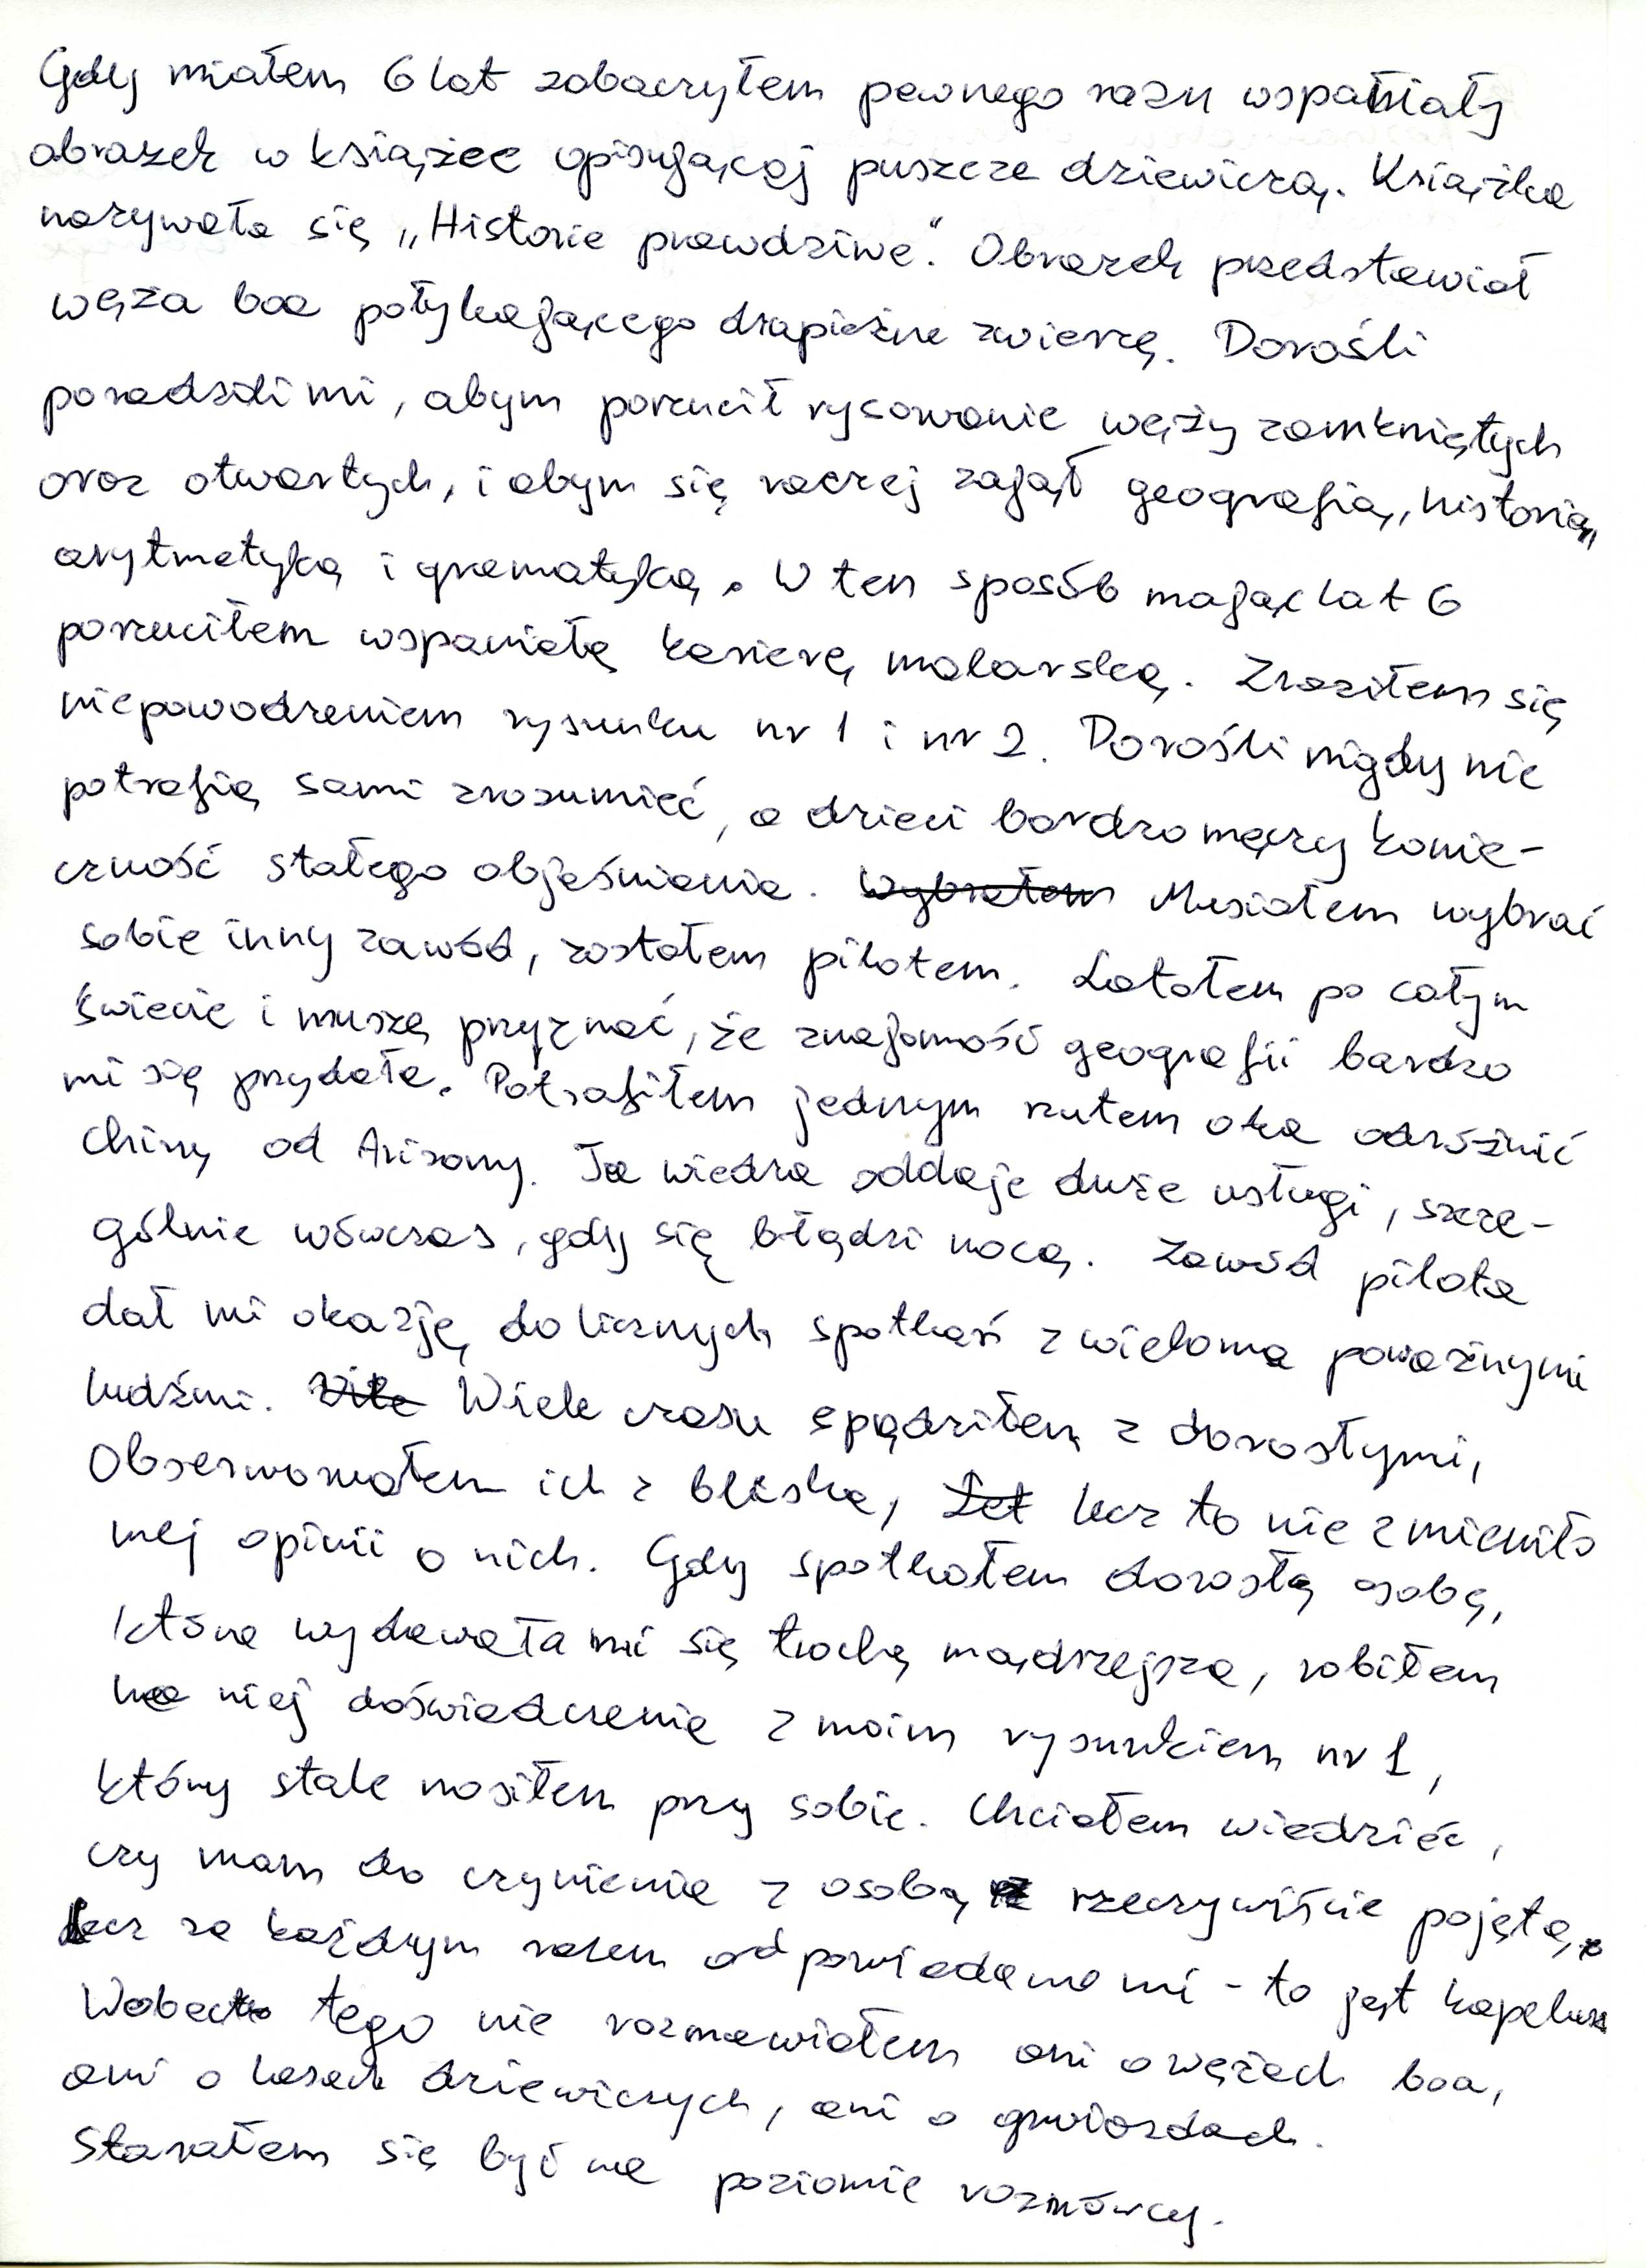 Gdy miałem 6 lat zobaczyłem pewnego razu wspaniały
obrazek w książce opisującej puszcze dziewiczą. Książka
nazywała się „Historie prawdziwe". Obrazek przedstawiał
węża boa połykającego drapieżne zwierzę. Dorośli
poradzili mi, abym porzucił rysowanie węży zamkniętych
oraz otwartych, i abym się raczej zajął geografią, historią,
arytmetyką i gramatyką. W ten sposób mając lat 6
porzuciłem wspaniałą karierę malarską. Zraziłem się
niepowodzeniem rysunku nr 1 i nr 2. Dorośli nigdy nie
potrafią sami zrozumieć, a dzieci bardzo męczy konie-
czność stałego objaśniania. Wybrałem Musiałem wybrać
sobie inny zawód, zostałem pilotem. Latałem po całym
świecie i muszę przyznać, że znajomość geografii bardzo
mi się przydała. Potrafiłem jednym rzutem oka odróżnić
Chiny od Arizony. Ta wiedza oddaje duże usługi, szcze-
gólnie wówczas, gdy się błądzi nocą. Zawód pilota
dał mi okazję do licznych spotkań z wieloma poważnymi
ludźmi. Wile Wiele czasu spędziłem z dorosłymi,
Obserwowałem ich z bliska, Let lecz to nie zmieniło
mej opinii o nich. Gdy spotkałem dorosłą osobę,
która wydawała mi się trochę mądrzejsza, robiłem
na niej doświadczenie z moim rysunkiem nr 1,
który stale nosiłem przy sobie. Chciałem wiedzieć,
czy mam do czynienia z osobą rzeczywiście pojętą,
lecz za każdym razem odpowiadano mi - to jest kapelusz
Wobec tego nie rozmawiałem ani o wężach boa,
ani o lasach dziewiczych, ani o gwiazdach.
Starałem się być na poziomie rozmówcy.